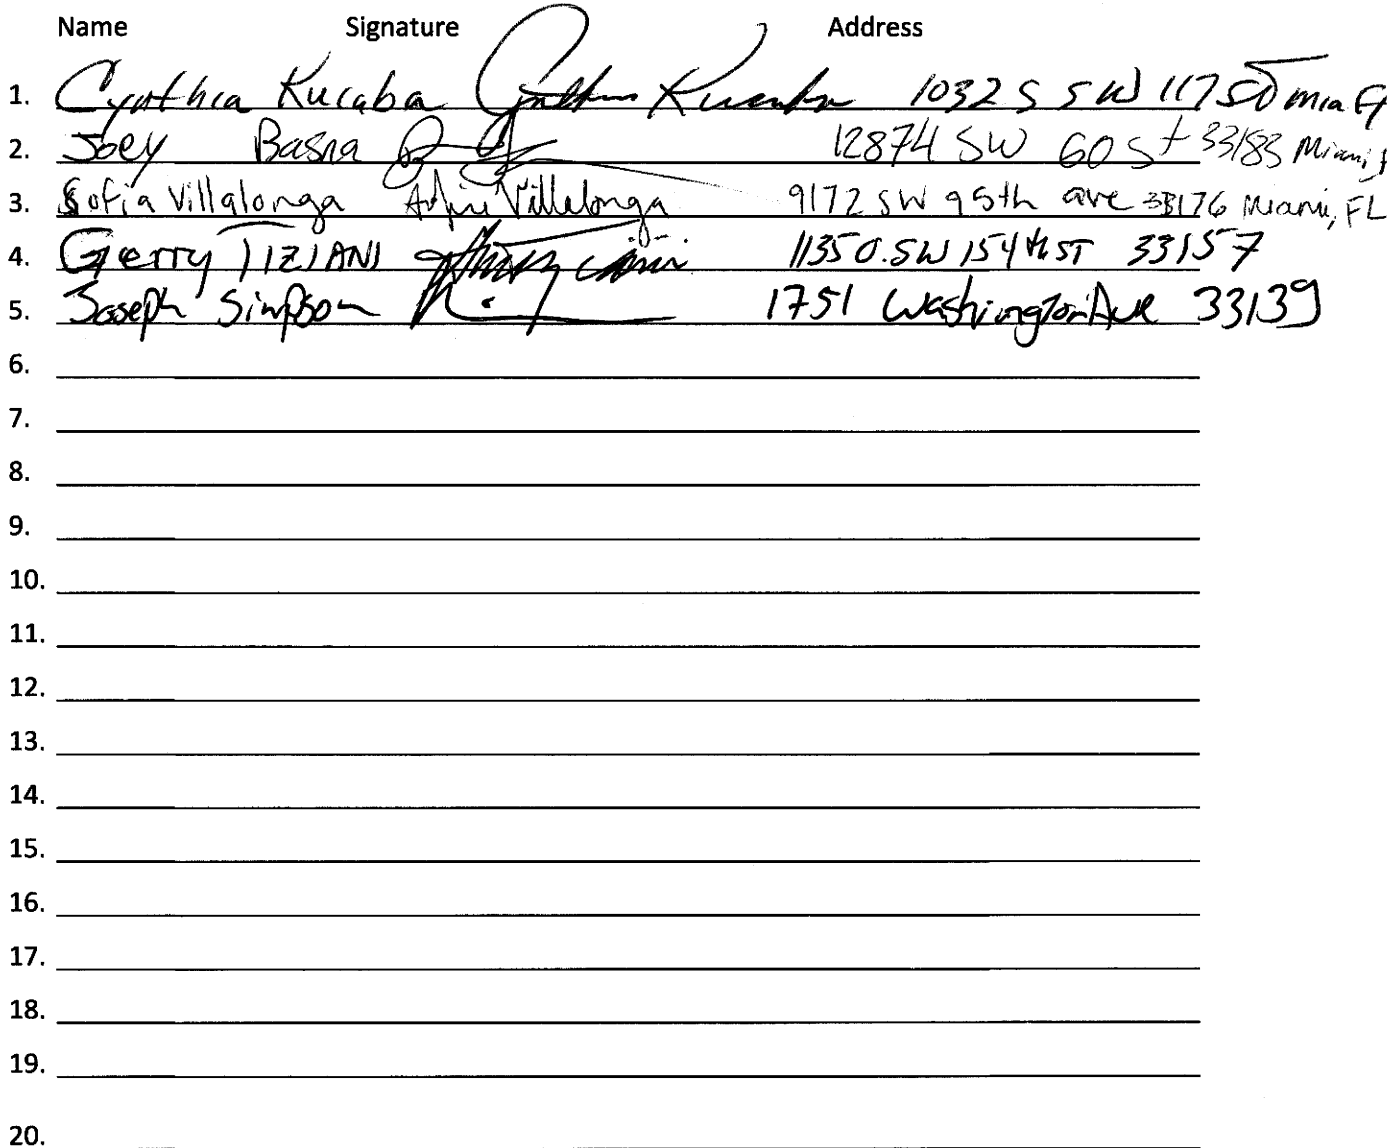 Name Signature Address
1. Cynthia Kucaba Kucaba 10325 SW 117 Mia Fl
2. Joey Basna 12874 SW 60 St 33183 Miami, f
3. Sofia Villalonga Villalonga 9172 SW 95th ave 33176 Miami, FL
4. Gerry TIZIANI 11350.SW 154th ST 33157
5. Joseph Simpson 1751 Washington Ave 33139
6.
7.
8.
9.
10.
11.
12.
13.
14.
15.
16.
17.
18.
19.
20.